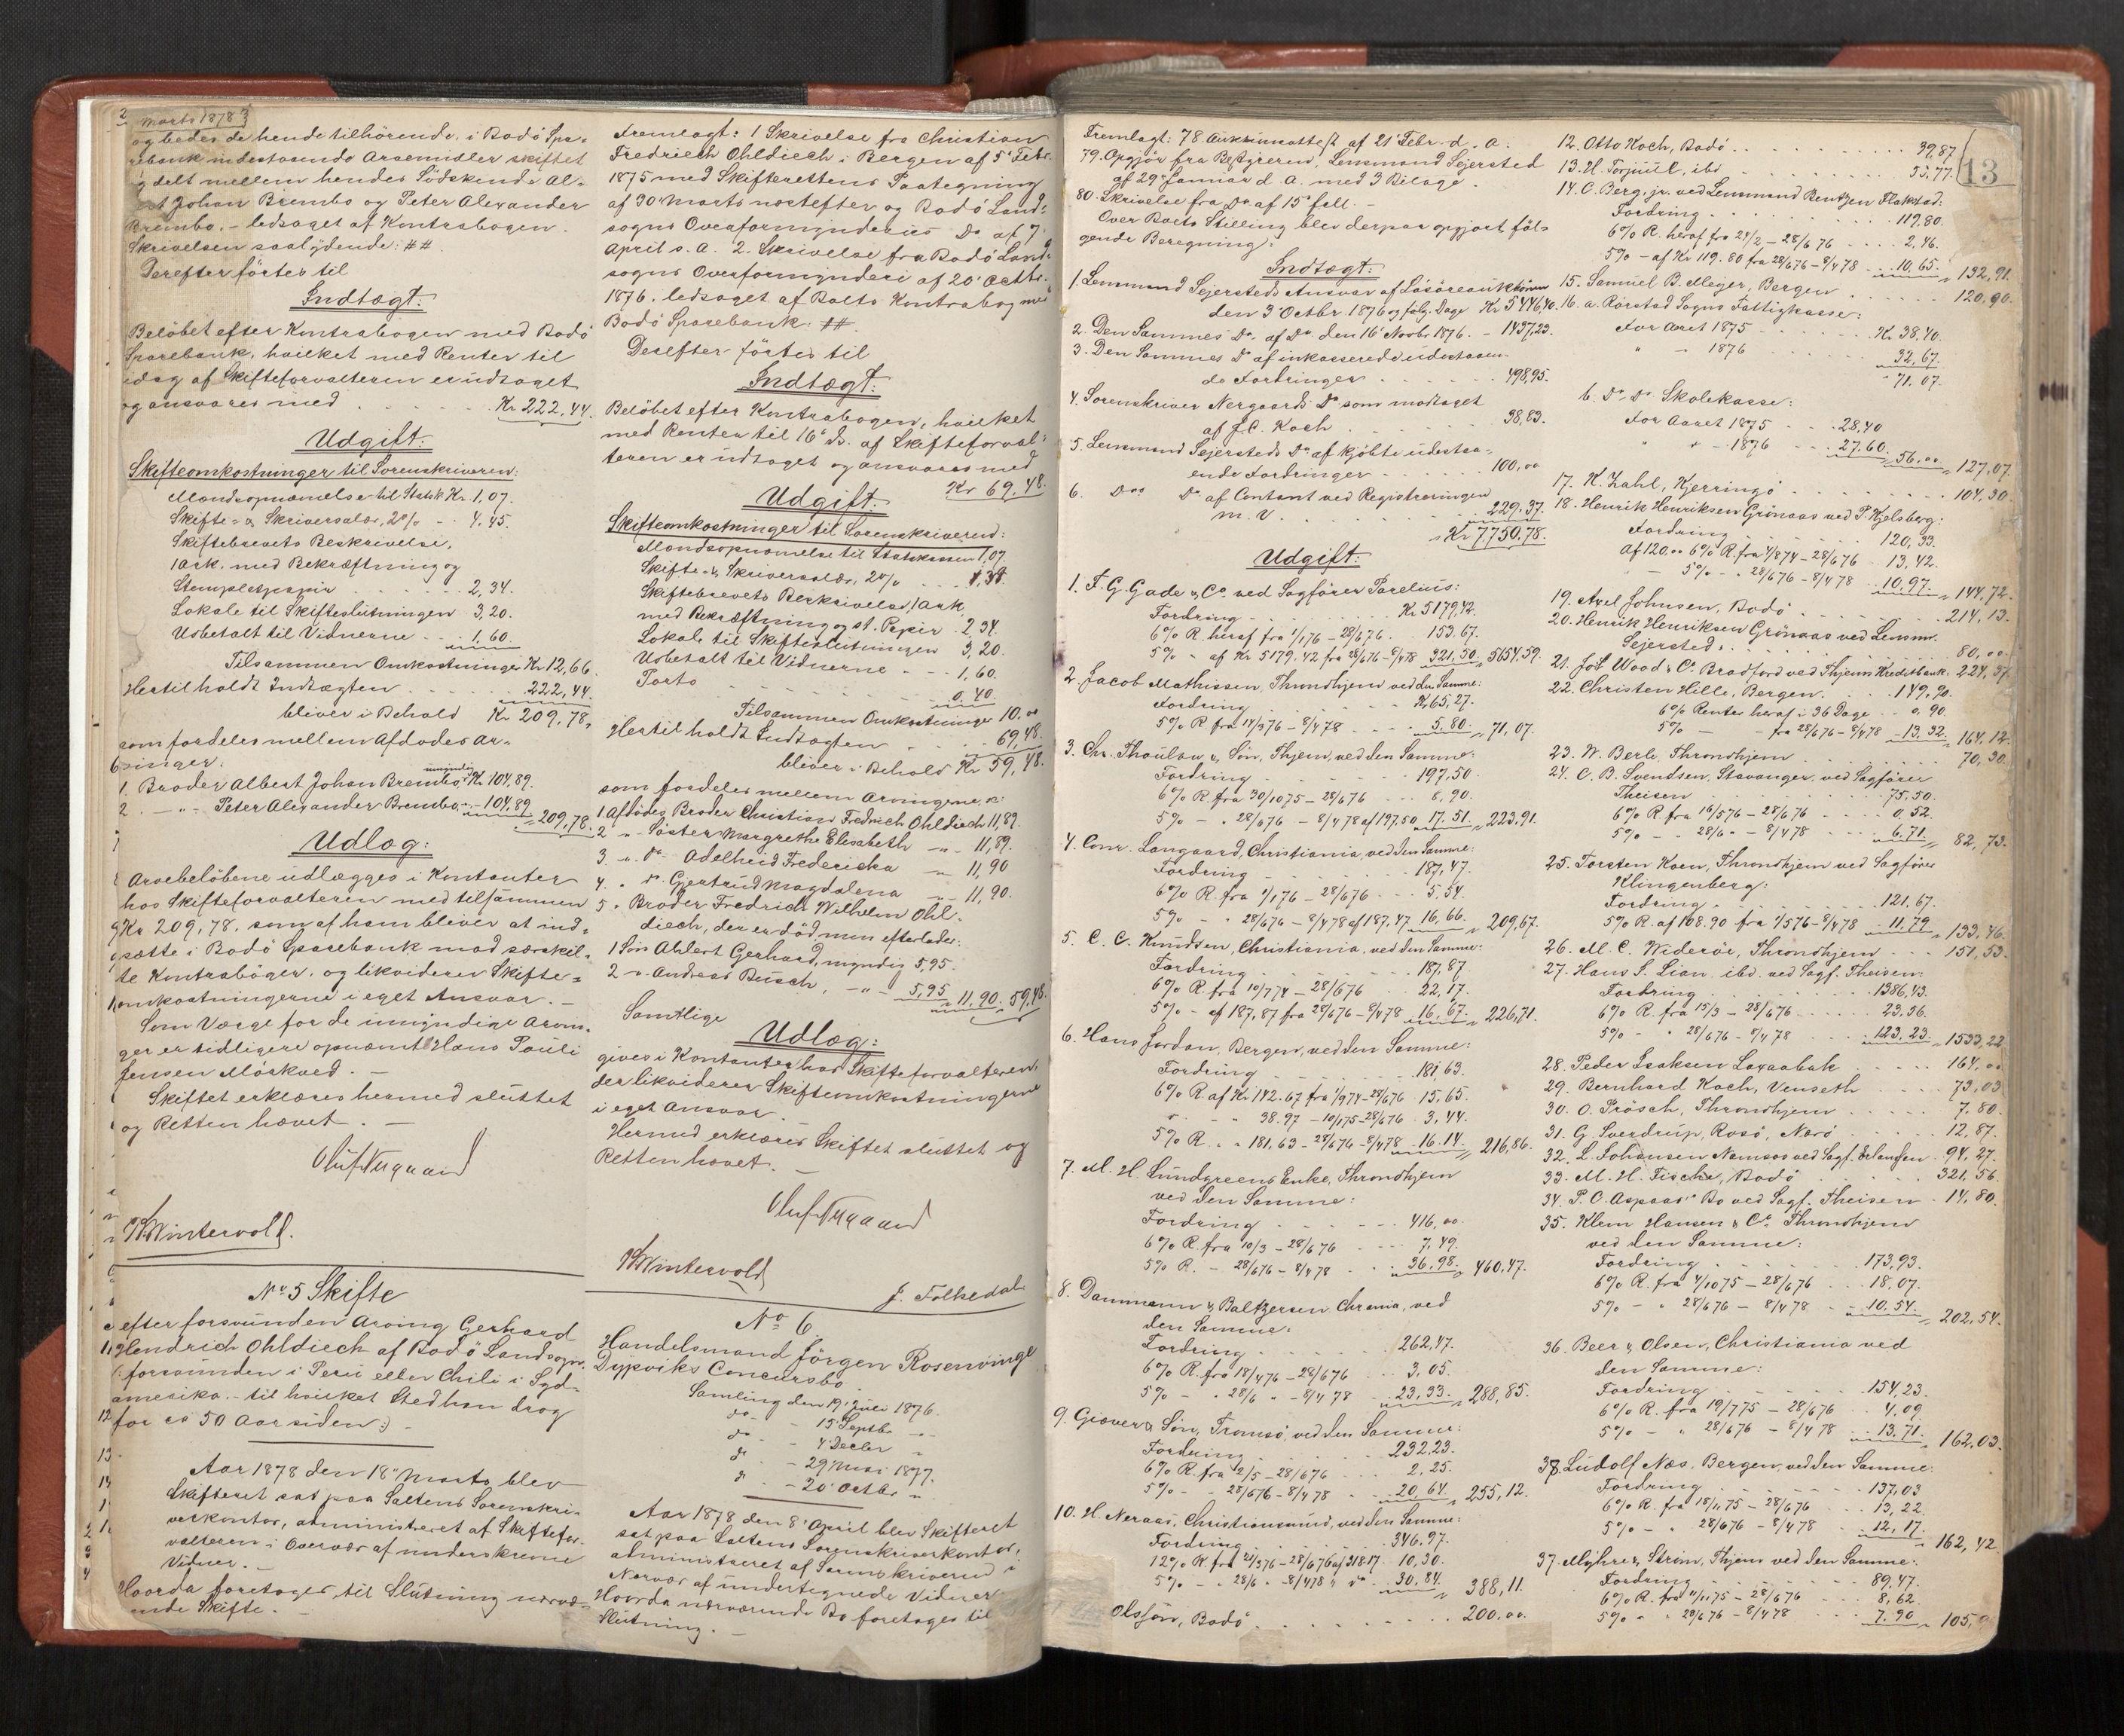 Marts 1878
og bedes de hende tilhörende, i Bodö Spa-
rebank indestaaende Arvemidler skiftet
og delt mellem hendes Södskende Al-
bert Johan Brembo og Peter Alexander
Brembo, - ledsaget af Kontrabogen.
Skrivelsen saalydende: ##
Derefter förtes til
Indtægt:
Belöbet efter Kontrabogen med Bodö
Sparebank, hvilket med Renter til
idag af Skifteforvalteren er udtaget
og ansvares med . . . . Kr. 222,44.
Udgift:
Skifteomkostninger til Sorenskriveren:
Mandsopnævnelse til Statsk. Kr. 1,07.
Skifte- & Skriversalær, 2% - 4,45.
Skiftebrevets Beskrivelse,
1 Ark, med Bekræftning og
Stempletpapir . . . . 2,34.
Lokale til Skifteslutningen 3,20.
Udbetalt til Vidnerne . . 1,60.
Tilsammen Omkostninger Kr. 12,66.
Hertil holdt Indtægten . . . . 222,44.
bliver i Behold Kr 209,78,
som fordeles mellem Afdödes Ar-
vinger:
1. Broder Albert Johan Brembo, myndig Kr. 104,89.
2. -"- Peter Alexander Brembo, - 104,89
209,78.
Udlæg:
Arvebelöbene udlægges i Kontanter
hos Skifteforvalteren med tilsammen
Kr 209,78, som af ham bliver at ind-
sætte i Bodö Sparebank mod særskil-
te Kontraböger, og likviderer Skifte-
omkostningerne i eget Ansvar. -
Som Værge for de umyndige Arvin-
ger er tidligere opnævnt Hans Pauli
Jensen Mörkved. -
Skiftet erklæres hermed sluttet
og Retten hævet. -
Oluf Nergaard
Wintervold.
No 5 Skifte
efter forsvunden Arving Gerhard
Hendrich Ohldiech af Bodö Landsogn.
(: forsvunden i Peru eller Chili i Syd-
amerika - til hvilket Sted han drog
for ca 50 Aar siden :) -
Aar 1878 den 18. Marts blev
Skifteret sat paa Saltens Sorenskri-
verkontor, administreret af Skiftefor-
valteren i Overvær af underskrevne
Vidner. -
Hvorda foretages til Slutning nærvæ-
rende Skifte. -
Fremlagt: 1 Skrivelse fra Christian
Fredriech Ohldiech i Bergen af 5' Febr.
1875 med Skifterettens Paategning
af 30 Marts næstefter og Bodö Land-
sogns Overformynderies Do af 7'
April s. A. 2. Skrivelse fra Bodö Land-
sogns Overformynderi af 20' Octbr.
1876, ledsaget af Boets Kontrabog med
Bodö Sparebank: ##.
Derefter förtes til
Indtægt:
Belöbet efter Kontrabogen, hvilket
med Renter til 16' ds. af Skifteforval-
teren er udtaget og ansvares med
Kr 69,48.
Udgift:
Skifteomkostninger til Sorenskriveren:
Mandsopnævnelse til Statskassen 1,07
Skifte- & Skriversalær, 2% . . . 1,39.
Skiftebrevets Beskrivelse, 1 Ark
med Bekræftning og st. Papir . 2,34.
Lokale til Skifteslutningen 3,20.
Udbetalt til Vidnerne . . . 1,60.
Porto . . . . 0,40.
Tilsammen Omkostninger 10.00
Hertil holdt Indtægten . . . . 69,48.
bliver i Behold Kr 59,48.
som fordeles mellem Arvingerne, n:
1 Afdödes Broder Christian Fredrich Ohldiech 11,89.
2 " Söster Margrethe Elisabeth -"- 11,89.
3. " do - Adelheid Fredericka " 11,90
4. " do Gjertrud Magdalena " 11,90.
5 " Broder Fredrich Wilhelm Ohl-
diech, der er död men efterlader:
1 Sön Ahlert Gerhard, myndig 5,95.
2 " Andreas Busch, -"- 5,95 11,90. 59,48.
Samtlige
Udlæg:
gives i Kontanter hos Skifteforvalteren,
der likviderer Skifteomkostningerne
i eget Ansvar.
Hermed erklæres Skiftet sluttet og
Retten hævet. -
Oluf Nergaard
Wintervold
J. Folkedal
No 6
Handelsmand Jörgen Rosenvinge
Dypviks Concursbo.
Samling den 19' Juli 1876.
do - - 15' Septbr. -
do - - 4' Decbr "
do - - 29 Mai 1877.
do - - 20' Octbr "
Aar 1878 den 8' April blev Skifteret
sat paa Saltens Sorenskriverkontor,
administreret af Sorenskriveren i
Nærvær af undertegnede Vidner
Hvorda nærværende Bo foretages til
Slutning. -
13
Fremlagt: 78. Auktionsattest af 21' Febr. d. A.
79. Opgjör fra Bestyreren, Lensmand Sejersted
af 29' Januar d. A. med 3 Bilage.
80. Skrivelse fra Do af 15' feb. -
Over Boets Stilling blev derpaa opgjort föl-
gende Beregning:
Indtægt:
1. Lensmand Sejersteds Ansvar af Lösöreauktionen
den 3' Octbr 1876 og fölg. Dage Kr 5446,40.
2. Den Sammes Do af Do den 16' Novbr. 1876. - 1437,23.
3. Den Sammes Do af inkasserede udestaaen-
de Fordringer . . . . 498,95.
4. Sorenskriver Nergaards Do som modtaget
af J. C. Koch . . . . 38,83.
5. Lensmand Sejersteds Do af kjöbte udestaa-
ende Fordringer . . . . 100,00
6. Dos Do af Contant ved Registreringen
m. v. . . . . 229,37.
Kr 7750,78.
Udgift:
1. F. G. Gade & Co. ved Sagförer Parelius:
Fordring . . . . Kr 5179,42.
6% R. heraf fra 1/1 76 - 28/6 76. 153,67.
5% " af Kr 5179.42 fra 28/6 76 - 8/4 78 321,50. 5654,59.
2. Jacob Mathissen, Throndhjem ved den Samme:
Fordring . . . . Kr 65,27.
5% R fra 14/3 76 - 8/4 78 . . . 5.80. 71,07.
3. Chr. Thaulow & Sön, Thjem, ved den Samme:
Fordring . . . . 197,50.
6% R. fra 30/10 75 - 28/6 76 . . 8,90.
5% - " 28/6 76 - 8/4 78 af 197.50 17.51. 223,91.
4. Conr. Langaard, Christiania, ved den Samme:
Fordring . . . . 187,47.
6% R. fra 1/1 76 - 28/6 76 . . 5.54.
5% - " 28/6 76 - 8/4 78 af 187,47 16,66. 209,67.
5. C. C. Knudsen, Christiania, ved den Samme:
Fordring . . . . 187,87
6% R. fra 10/7 74 - 28/6 76 . . 22,17.
5% - af 187,87 fra 28/6 76 - 8/4 78 16,67. 226,71.
6. Hans Jordan, Bergen, ved den Samme:
Fordring . . . . 181,63.
6% R. af Kr. 142.67 fra 1/9 74 - 28/6 76 15,65.
" - " 38.97 - 10/1 75 - 28/6 76 3,44.
5% R. . " 181,63 - 28/6 76 - 8/4 78 16.14. 216,86.
7. M. H. Lundgreens Enke, Throndhjem
ved den Samme:
Fordring . . . . 416,00
6% R. fra 10/3 - 28/6 76 . . . 7,49.
5% R. - 28/6 76 - 8/4 78 . . . 36,98. 460,47.
8. Dammann & Baltzersen Chrania, ved
den Samme:
Fordring . . . . 262,47.
6% R. fra 18/4 76 - 28/6 76 . . 3,05.
5% - " 28/6 " - 8/4 78 . . 23,33. 288,85.
9. Giæver & Sön, Tromsö, ved den Samme:
Fordring . . . . 232,23.
6% R. fra 2/5 - 28/6 76 . . 2,25.
5% - " 28/6 76 - 8/4 78 . . 20,64. 255,12.
10. H. Neraas, Christianssund, ved den Samme:
Fordring . . . . 346,97.
12% R. fra 21/3 76 - 28/6 76 af 318.17 10,30.
5% - " 28/6 " - 8/4 78 " do . 30,84. 388,11.
Olsson, Bodö . . . . 200,00.
12. Otto Koch, Bodö . . . . 39,87
13. H. Torjuul, ibd . . . . 55,77.
14. C. Berg, jr. ved Lensmand Rentzen Flakstad:
Fordring . . . . 119,80.
6% R. heraf fra 24/2 - 28/6 76 . . . 2,46.
5% - af Kr 119.80 fra 28/6 76 - 8/4 78 . . . 10,65. 132,91.
15. Samuel B. Meyer, Bergen . . . . 120,90.
16. a. Rörstad Sogns Fattigkasse:
For Aaret 1875 . . . Kr. 38,40.
" - 1876 . . . . 32,67.
71,07.
b. Do Do Skolekasse:
For Aaret 1875 . . . 28,40
" " - 1876 . . . 27,60. 56,00 127,07.
17. K. Zahl, Kjerringö . . . . 104,30
18. Henrik Henriksen Grönaas ved P. Kjelsberg:
Fordring . . . . 120,33.
af 120.00 6% R. fra 4/8 74 - 28/6 76 . 13,42.
- 5% - " 28/6 76 - 8/4 78 . 10,97. 144,72.
19. Axel Johnsen, Bodö . . . . 214,13.
20. Henrik Henriksen Grönaas ved Lensm.
Sejersted . . . . 80,00
21. J & L Wood & Co. Bradford ved Thjems Kreditbank. 224,37
22. Christen Hille, Bergen. . . 149,90.
6% Renter heraf i 36 Dage . . 0,90.
5% - - fra 28/6 76 - 8/4 78 - 13,32. 164,12.
23. W. Berle, Throndhjem . . . . 70,30
24. C. B. Svendsen, Stavanger, ved Sagförer
Theisen . . . . 75,50.
6% R. fra 16/5 76 - 28/6 76 . . . 0,52.
5% - - 28/6 " - 8/4 78 . . . 6,71. 82,73.
25. Torsten Koen, Throndhjem ved Sagförer
Klingenberg:
Fordring . . . . 121,67.
5% R. af 108.90 fra 1/5 76 - 8/4 78 . . 11,79. 133,46.
26. M. C. Wideröe, Throndhjem . . . 151,53.
27. Hans S. Lian, ibd. ved Sagf. Theisen:
Fordring . . . . 1386,43.
6% R. fra 15/3 - 28/6 76 . . . 23,56.
5% - " 28/6 76 - 8/4 78 . . . 123,23. 1533,22
28. Peder Isaksen Laxaabak . . . . 164,00
29. Bernhard Koch, Venseth . . . . 73,03
30. O. Frösch, Throndhjem . . . . 7,80.
31. G. Sverdrup, Rosö, Nærö . . . . 12,87.
32. L. Johansen Namsos ved Sagf. Erlandsen . 94,27.
33. M. H. Fische, Bodö . . . . 321,56.
34. P. O. Aspaas' Bo ved Sagf. Theisen . 14,80.
35. Klem Hansen & Co. Throndhjem
ved den Samme:
Fordring . . . . 173,93.
6% R. fra 4/10 75 - 28/6 76 . . . 18,07.
5% - " 28/6 76 - 8/4 78 . - 10.54. 202,54.
36. Beer & Olsen, Christiania ved
den Samme:
Fordring . . . . 154,23.
6% R. fra 19/7 75 - 28/6 76 . . 4,09.
5% - " 28/6 76 - 8/4 78 . . 13,71. 162,03.
38. Ludolf Næs, Bergen, ved den Samme:
Fordring . . . . 137,03
6% R. fra 18/11 75 - 28/6 76 . . 13,22
5% - " 28/6 76 - 8/4 78 . . 12,17. 162,42
37. Myhre & Ström, Thjem ved den Samme:
Fordring . . . . 89,47.
6% R. fra 11/11 75 - 28/6 76 . . 8,62.
5% " " 28/6 76 - 8/4 78 . . 7,90 105,